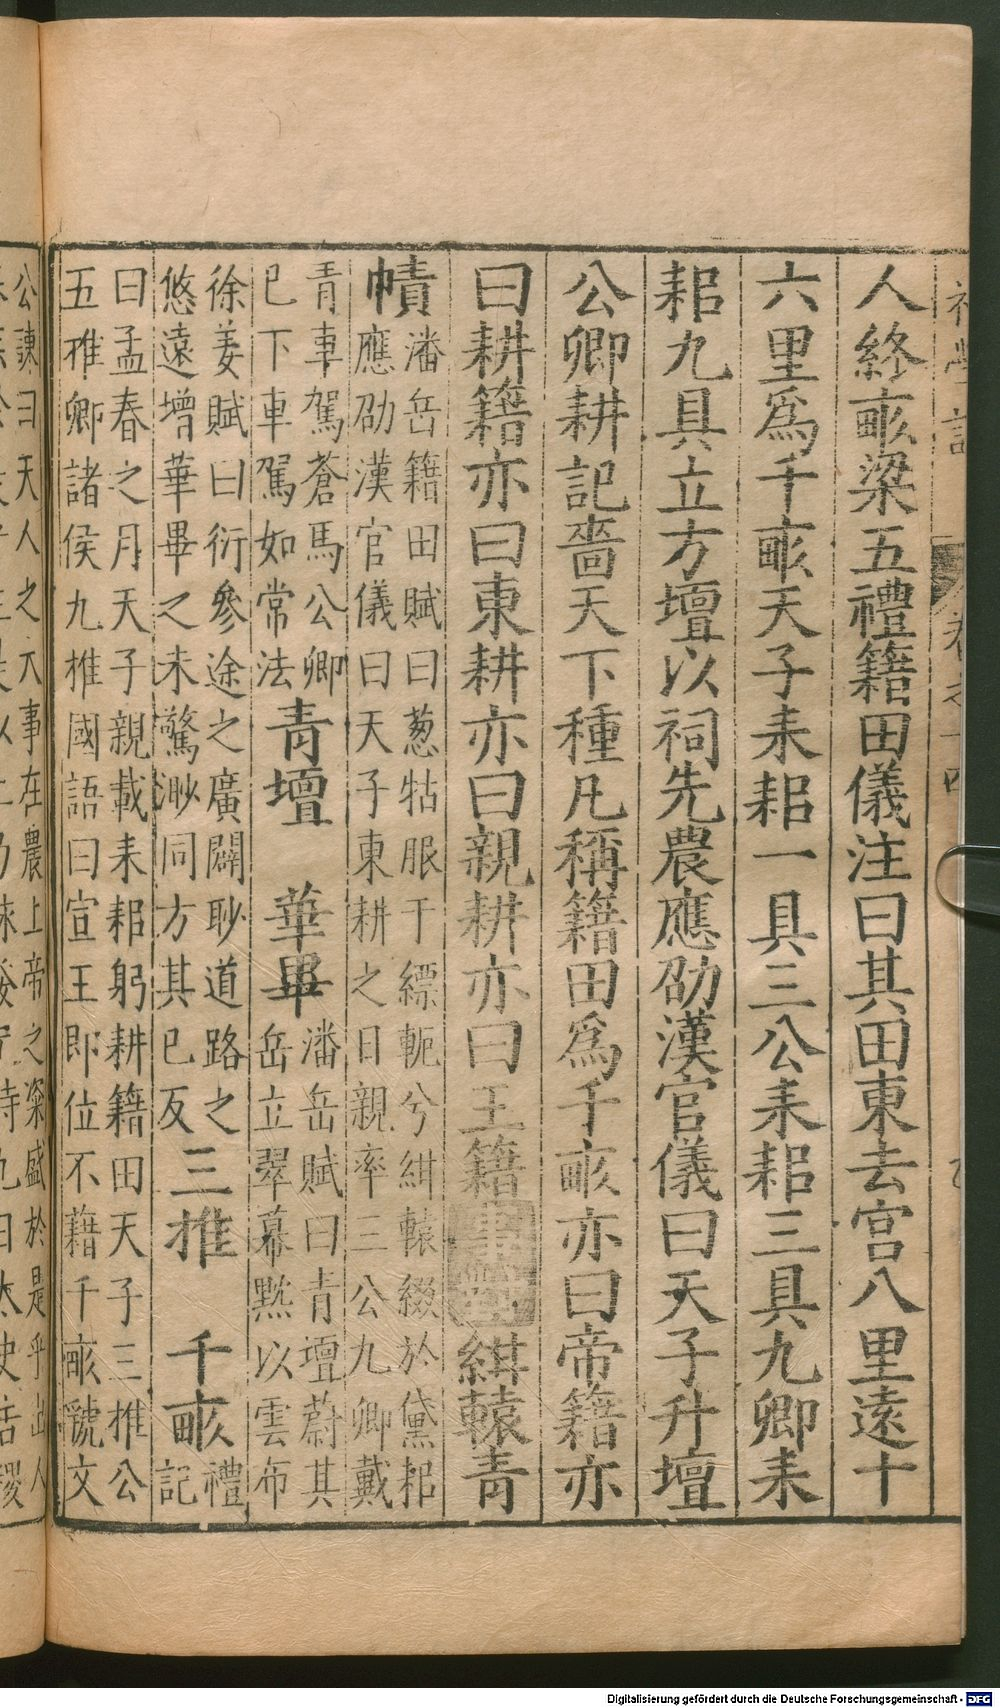 人終畞梁五禮籍田儀注曰其田東去宮八里遠十
六里爲千畞天子耒耜一具三公耒耜三具九卿耒
耜九具立方壇以祠先農應劭漢官儀曰天子升壇
公卿耕記嗇夫下種凡稱籍田爲千畞亦曰帝籍亦
曰耕籍亦曰東耕亦曰親耕亦曰王籍
事對
紺轅青
幘
潘岳籍田賦曰葱犗服于縹軛兮紺轅綴於黛耜
應劭漢官儀曰天子東耕之日親率三公九卿戴
青車駕蒼馬公卿
已下車駕如常法
青壇 華畢
潘岳賦曰青壇蔚其
岳立翠幕黙以雲布
徐姜賦曰衍參途之廣闢眇道路之
悠遠增華畢之未驚渺同方其已反
三推 千畞
禮
記
曰孟春之月天子親載耒耜躬耕籍田天子三推公
五推卿諸侯九推國語曰宣王即位不藉千畞虢文
公諫曰天人之大事在農上帝之粢盛於是乎出